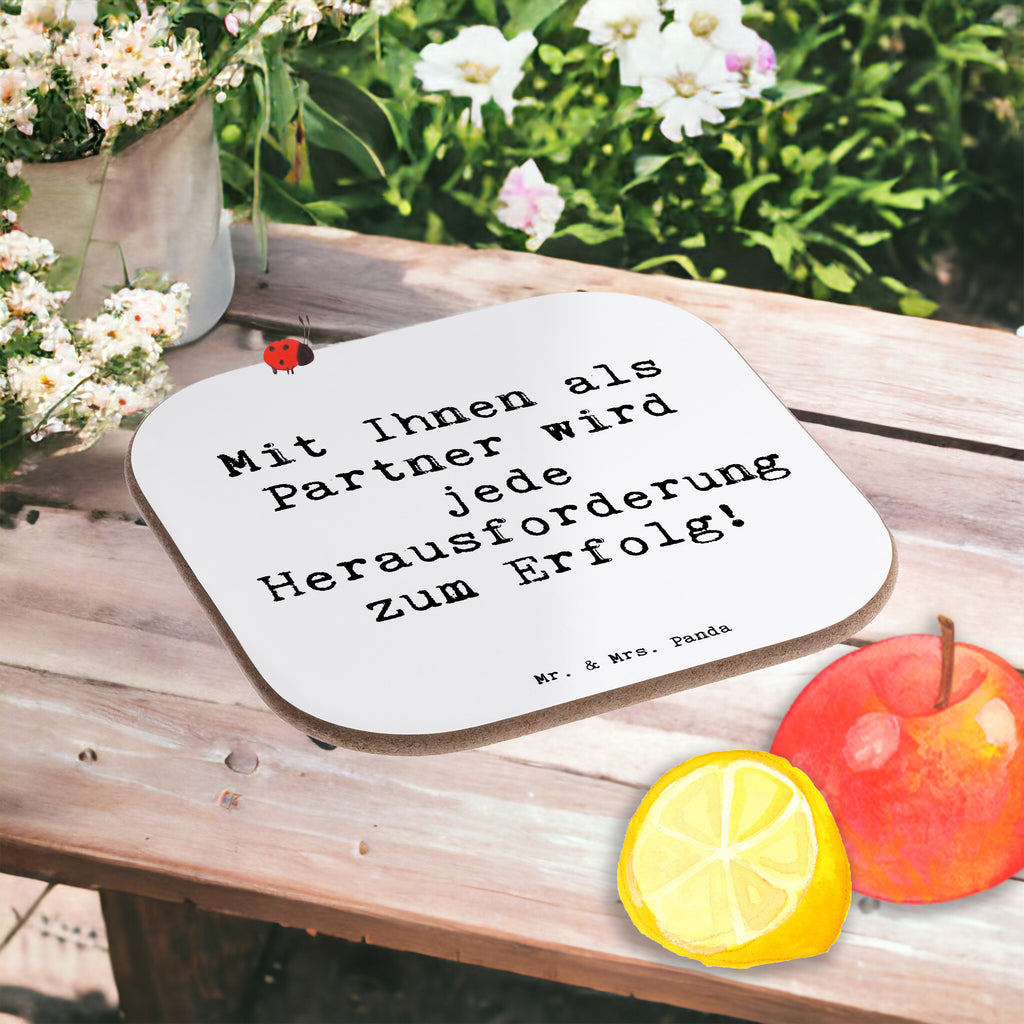 Mit Ihnen als
Partner wird
jede
Herausforderung
zum Erfolg!
Mr. & Mrs. Panda